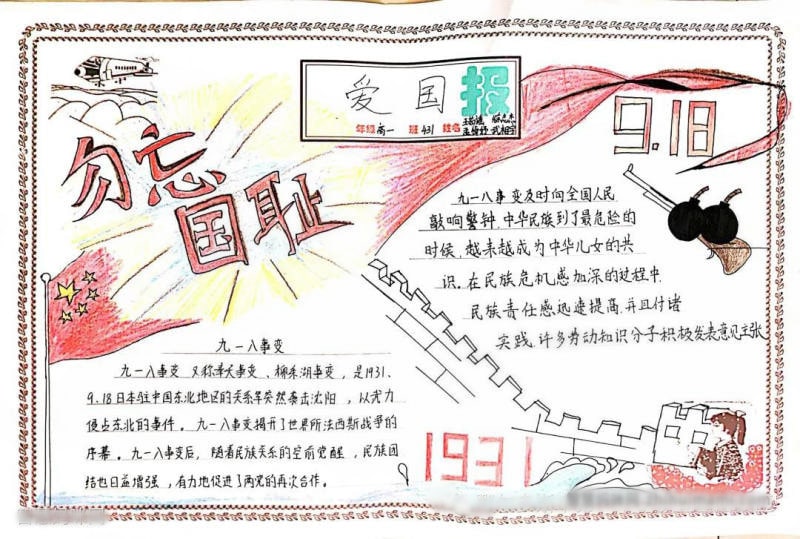 爱国报
年级 高一 班 431 姓名
9.18
勿忘
国耻
九一八事变及时向全国人民
敲响警钟.中华民族到了最危险的
时候,越来越成为中华儿女的共
识。在民族危机感加深的过程中.
民族责任感迅速提高.并且付诸
实践.许多劳动知识分子积极发表意见主张
九一八事变
九一八事变 又称奉天事变、柳条湖事变,是1931、
9、18日本驻中国东北地区的关系早突然袭击沈阳,以武力
侵占东北的事件。九一八事变揭开了世界所法西斯战争的
序幕。九一八事变后,随着民族关系的空前觉醒,民族团
结也日益增强,有力地促进了两党的再次合作。
1931